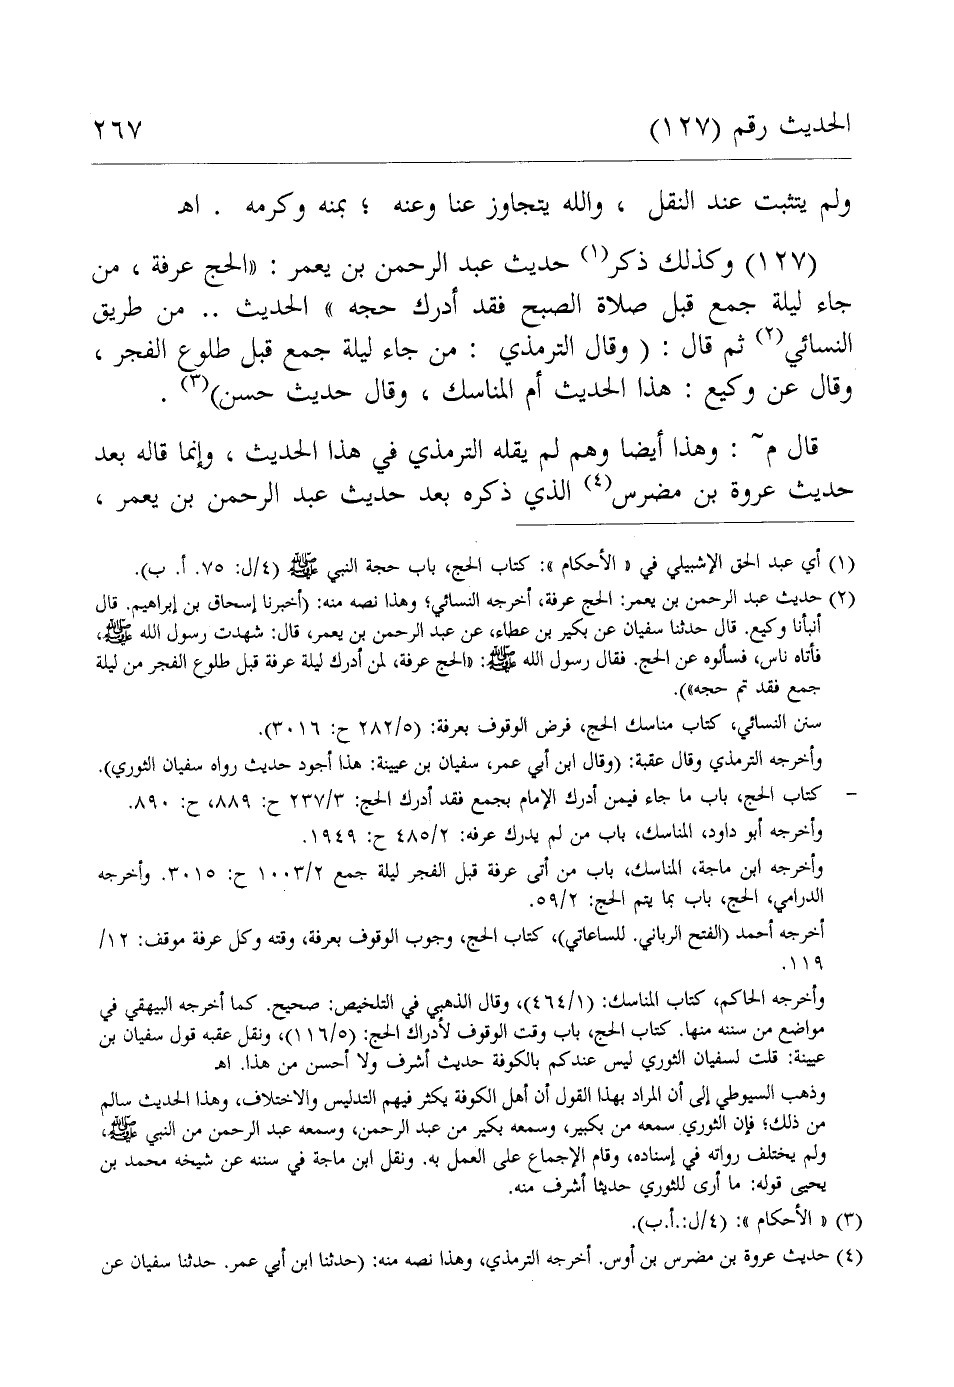 الحديث رقم (١٢٧) ٢٦٧
ولم يتثبت عند النقل ، والله يتجاوز عنا وعنه ؛ بمنه وكرمه . اهـ
(١٢٧) وكذلك ذكر(١) حديث عبد الرحمن بن يعمر : «الحج عرفة ، من
جاء ليلة جمع قبل صلاة الصبح فقد أدرك حجه » الحديث .. من طريق
النسائي(٢) ثم قال : ( وقال الترمذي : من جاء ليلة جمع قبل طلوع الفجر ،
وقال عن وكيع : هذا الحديث أم المناسك ، وقال حديث حسن)(٣) .
قال م~ : وهذا أيضا وهم لم يقله الترمذي في هذا الحديث ، وإنما قاله بعد
حديث عروة بن مضرس(٤) الذي ذكره بعد حديث عبد الرحمن بن يعمر ،
(١) أي عبد الحق الإشبيلي في « الأحكام »: كتاب الحج، باب حجة النبي ﷺ (٤/ل: ٧٥. أ. ب).
(٢) حديث عبد الرحمن بن يعمر: الحج عرفة، أخرجه النسائي؛ وهذا نصه منه: (أخبرنا إسحاق بن إبراهيم. قال
أنبأنا وكيع. قال حدثنا سفيان عن بكير بن عطاء، عن عبد الرحمن بن يعمر، قال: شهدت رسول الله ﷺ،
فأتاه ناس، فسألوه عن الحج. فقال رسول الله ﷺ: «الحج عرفة، لمن أدرك ليلة عرفة قبل طلوع الفجر من ليلة
جمع فقد تم حجه»).
سنن النسائي، كتاب مناسك الحج، فرض الوقوف بعرفة: (٢٨٢/٥ ح: ٣٠١٦).
وأخرجه الترمذي وقال عقبة: (وقال ابن أبي عمر، سفيان بن عيينة: هذا أجود حديث رواه سفيان الثوري).
– كتاب الحج، باب ما جاء فيمن أدرك الإمام بجمع فقد أدرك الحج: ٢٣٧/٣ ح: ٨٨٩، ح: ٨٩٠.
وأخرجه أبو داود، المناسك، باب من لم يدرك عرفه: ٤٨٥/٢ ح: ١٩٤٩.
وأخرجه ابن ماجة، المناسك، باب من أتى عرفة قبل الفجر ليلة جمع ١٠٠٣/٢ ح: ٣٠١٥. وأخرجه
الدرامي، الحج، باب بما يتم الحج: ٥٩/٢.
أخرجه أحمد (الفتح الرباني. للساعاتي)، كتاب الحج، وجوب الوقوف بعرفة، وقته وكل عرفة موقف: ١٢/
١١٩.
وأخرجه الحاكم، كتاب المناسك: (٤٦٤/١)، وقال الذهبي في التلخيص: صحيح. كما أخرجه البيهقي في
مواضع من سننه منها. كتاب الحج، باب وقت الوقوف لأدراك الحج: (١١٦/٥)، ونقل عقبه قول سفيان بن
عيينة: قلت لسفيان الثوري ليس عندكم بالكوفة حديث أشرف ولا أحسن من هذا. اهـ
وذهب السيوطي إلى أن المراد بهذا القول أن أهل الكوفة يكثر فيهم التدليس والاختلاف، وهذا الحديث سالم
من ذلك؛ فإن الثوري سمعه من بكبير، وسمعه بكير من عبد الرحمن، وسمعه عبد الرحمن من النبي ﷺ،
ولم يختلف رواته في إسناده، وقام الإجماع على العمل به. ونقل ابن ماجة في سننه عن شيخه محمد بن
يحيى قوله: ما أرى للثوري حديثا أشرف منه.
(٣) « الأحكام »: (٤/ل:.أ.ب).
(٤) حديث عروة بن مضرس بن أوس. أخرجه الترمذي، وهذا نصه منه: (حدثنا ابن أبي عمر. حدثنا سفيان عن